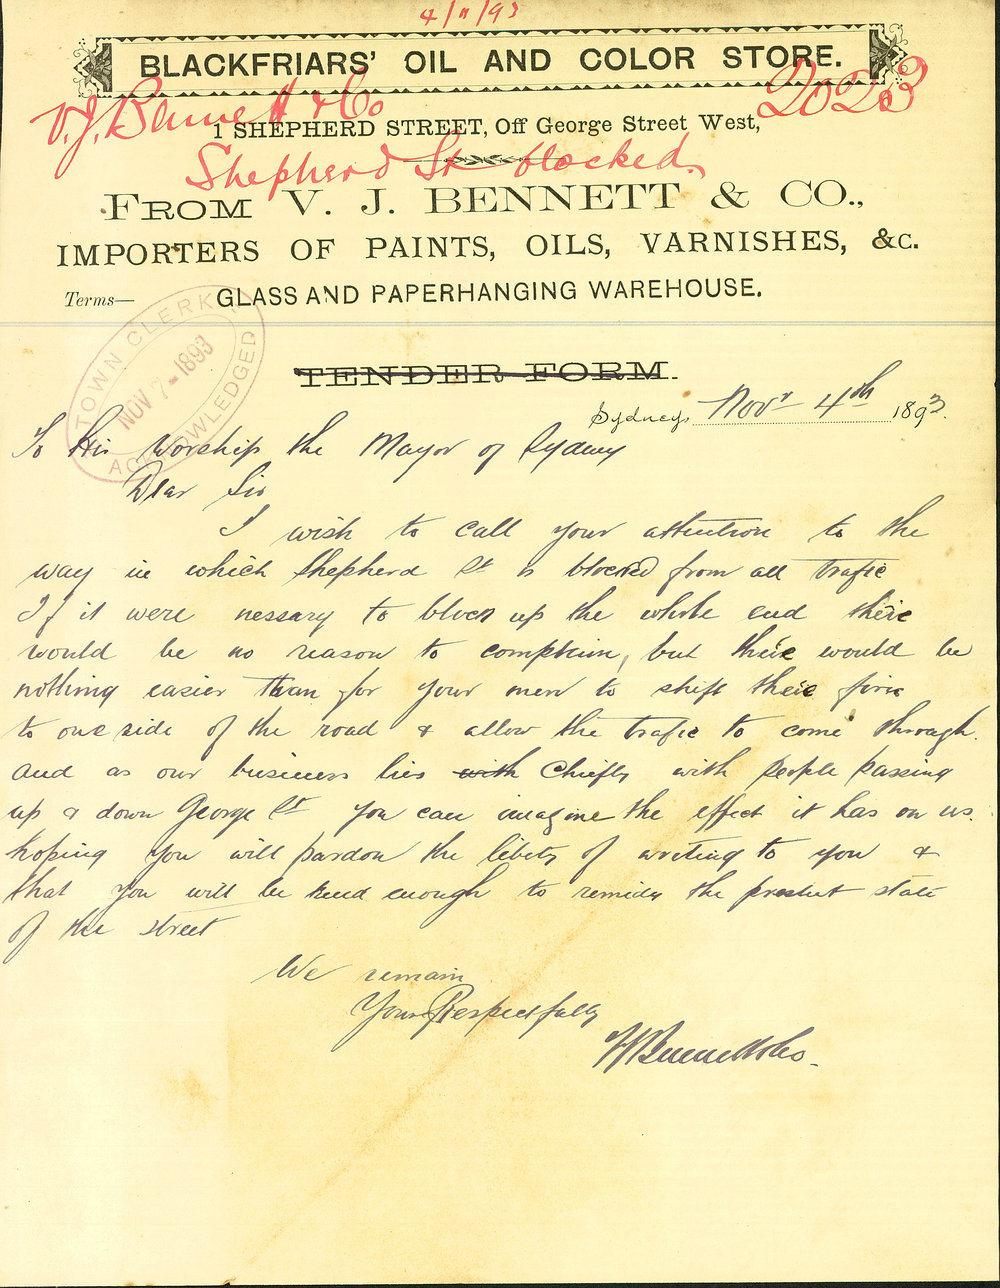 4/11/93
BLACKFRIARS' OIL AND COLOR STORE.
V. J. Bennett & Co
2023
1 SHEPHERD STREET, Off George Street West,
Shepherd St blocked.
FROM V. J. BENNETT & CO.,
IMPORTERS OF PAINTS, OILS, VARNISHES, &c.
Terms—
GLASS AND PAPERHANGING WAREHOUSE.
TOWN CLERK
NOV 7-1893
ACKNOWLEDGED
TENDER FORM.
Sydney, Novr 4th 1893.
To His Worship the Mayor of Sydney
Dear Sir
I wish to call your attention to the
way in which Shepherd St is blocked from all trafic
If it were nessary to block up the whole end their
would be no reason to complain, but their would be
nothing easier than for your men to shift their
to one side of the road & allow the trafic to come through.
and as our business lies with chiefly with people passing
up & down George St you can imagine the effect it has on us.
hoping you will pardon the liberty of writing to you &
that you will be kind enough to remidy the present state
of the street
We remain
Yours Respectfully
VJ Bennett & Co.